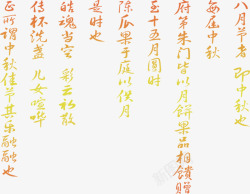 八月节者 即中秋也
每届中秋
府第朱门皆以月饼果品相馈赠
至十五月圆时
陈瓜果于庭以供月
是时也
皓魂当空 彩云初散
传杯洗盏 儿女喧哗
正所谓中秋佳节其乐融融也